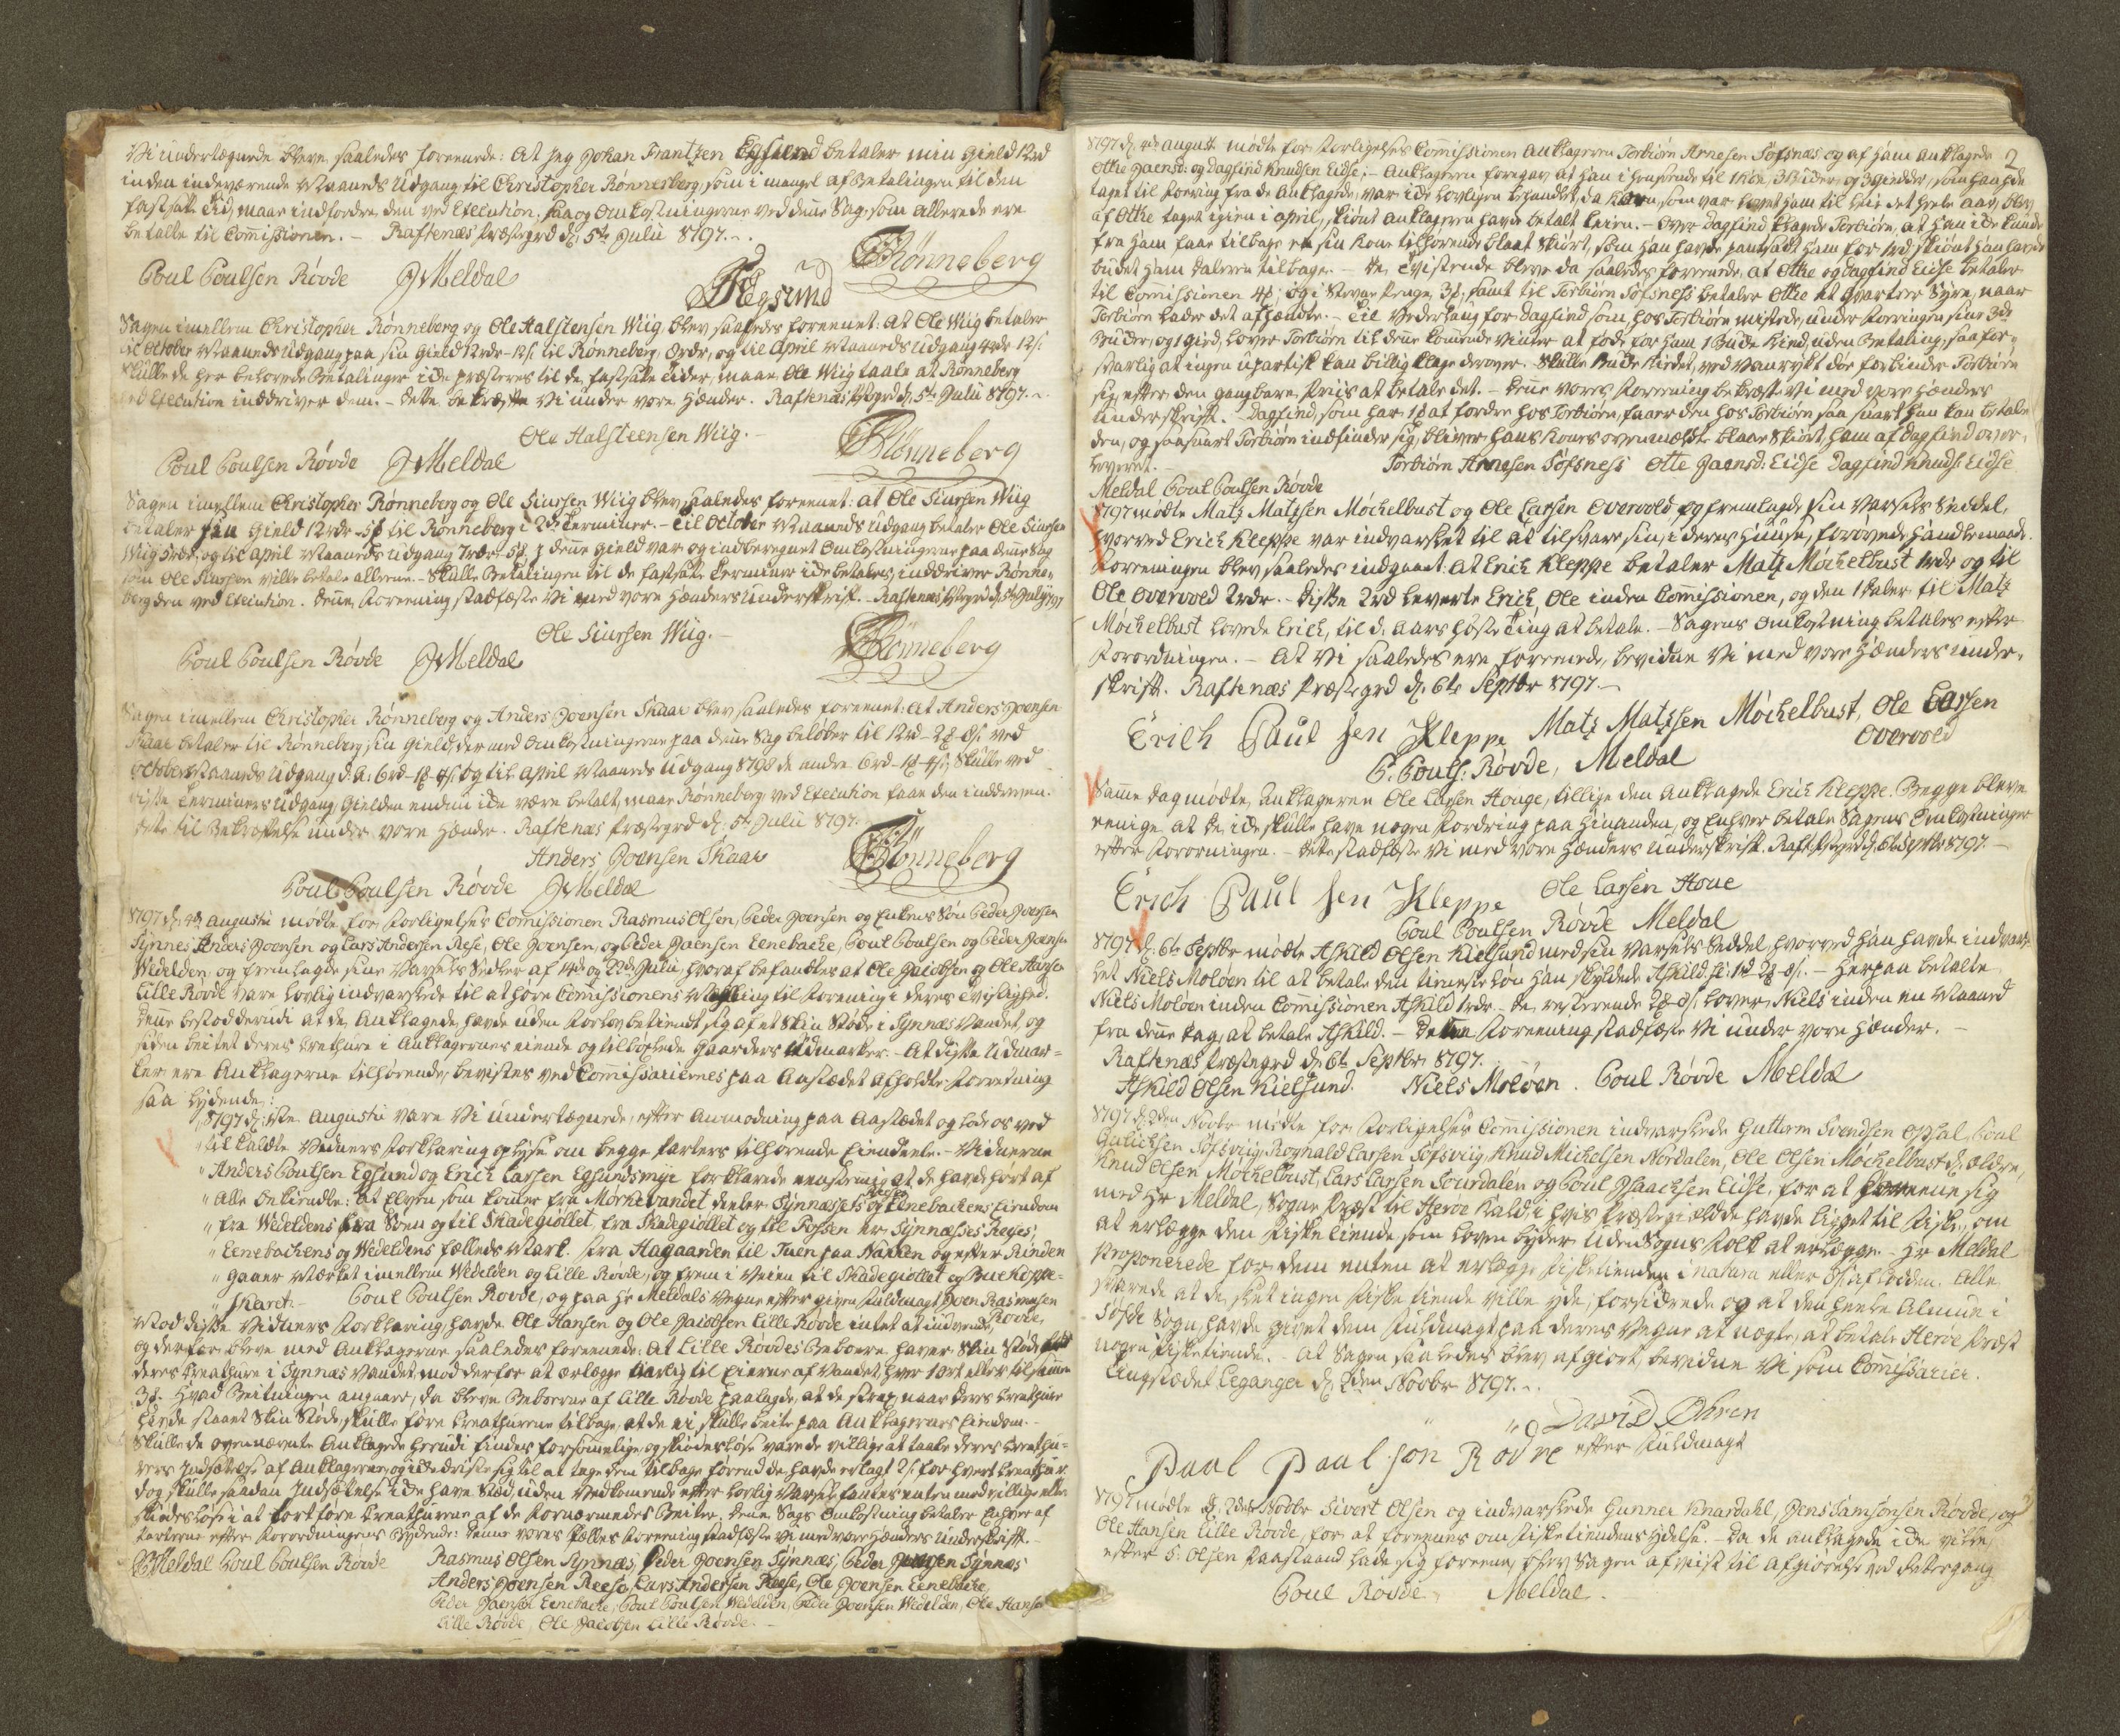 Vi undertegnede bleve saaledes foreenede: At jeg Johan Frantzen Egsund betaler min Gield 12rd
inden indeværende Maaneds Udgang til Christopher Rønneberg, som i mangel af Betalingen til den
fastsatte Tid, maae indfordre den ved Execution, saa og Omkostningerne ved denne Sag, som allerede ere
betalte til Commissionen. - Raftenæs Præstegrd d: 5te Julii 1797.
Poul Poulsen Røvde JMeldal Egsund Rønneberg
Sagen imellem Christopher Rønneberg og Ole Halstensen Wiig blev saaledes foreenet: At Ole Wiig betaler
til October Maaneds Udgang paa sin Gield 12rdr - 12s. til Rønneberg, 8rdr, og til April Maaneds Udgang 4rdr 12s.
Skulle de her belovede Betalinger icke præsteres til de fastsatte Tider, maae Ole Wiig taale at Rønneberg
ved Execution inddriver dem. - Dette bekræfte Vi under vore Hænder. Raftenæs Pstgrd d: 5te Julii 1797.
Ole Halsteensen Wiig. - Rønneberg
Poul Poulsen Røvde JMeldal
Sagen imellem Christopher Rønneberg og Ole Siursen Wiig blev saaledes foreenet: at Ole Siursen Wiig
betaler sin Gield 12rdr - 5 til Rønneberg i 2de Terminer. - Til October Maaneds Udgang betaler Ole Siursen
Wiig 5rdr og til April Maaneds Udgang 7rdr - 5. I denne Gield var og indberegnet Omkostningerne paa denne Sag
som Ole Siursen ville betale alleene. - Skulle Betalingen til de fastsatte Terminer icke betales, inddriver Rønne-
berg den ved Execution. Denne Foreening stadfæste Vi med vore Hænders Underskrift. - Raftenæs Pstgrd d: 5te Julii 1797
Ole Siursen Wiig. - Rønneberg
Poul Poulsen Røvde JMeldal
Sagen imellem Christopher Rønneberg og Anders Joensen Skaar blev saaledes foreenet: At Anders Joensen
Skaar betaler til Rønneberg sin Gield, der med Omkostningerne paa denne Sag beløber til 12rd - 2 - 8s. ved
Octobers Maaneds Udgang d: A: 6rd - 1 - 4s. og til April Maaneds Udgang 1798 de andre 6rd - 1 - 4s. Skulle ved
disse Terminers Udgang, Gielden endnu icke være betalt, maae Rønneberg ved Execution faae den inddreven.
Dette til Bekræftelse under vore Hænder. Raftenæs Præstegrd d: 5te Julii 1797.
Anders Joensen Skaar Rønneberg
Poul Poulsen Røvde JMeldal
1797 d: 4de Augustii mødte for Forligelses Commissionen Rasmus Olsen, Peder Joensen og Enkens Søn Peder Joensen
Synnes, Anders Joensen og Lars Andersen Rese, Ole Joensen, og Peder Joensen Eenebacke, Poul Poulsen og Peder Joensen
Wedelden, og fremlagde sine Varsels Sedler af 14de og 22de Julii, hvoraf befandtes at Ole Jacobsen og Ole Hansen
Lille Røvde vare lovlig indvarslede til at høre Commissionens Mægling til Foreening i deres Tvistighed.
Denne bestod derudi at de Anklagede, havde uden Forlov betiendt sig af et Skin Støde i Synnæs Vandet, og
siden beitet deres Creature i Anklagernes eiende og tilhørende Gaarders Udmarker. - At disse Udmar-
ker ere Anklagerne tilhørende, bevistes ved Commissariernes paa Aastædet afholdte Forretning
saa lydende:
"1797 d: Augustii vare Vi undertegnede, efter Anmodning paa Aastædet og lode os ved
"tilkaldte Vidners Forklaring oplyse om begge Parters tilhørende Eiendeele. - Vidnerne
"Anders Poulsen Egsund og Erich Larsen Egsundsmyr forklarede eensstemmig at de havde hørt af
"Alle Omkiendte: At Elven som kommer fra Mørkevandet deeler Synnæssets og Enebackens Eiendom
"fra Wedeldens fra Søen og til Skadegiøllet, fra Skadegiøllet og til Fossen er Synnæsses Reeses,
"Eenebackens og Wedeldens fælleds Mark. Fra Hagaarden til Tuen paa Nakken og efter Rinden
"gaaer Mærket imellem Wedelden og Lille Røvde, og frem i Veien til Skadegiøllet og Buckoppe-
"skaret. - Poul Poulsen Røvde, og paa Hr Meldals Vegne efter given Fuldmagt Joen Rasmussen Røvde.
Mod disse Vidners Forklaring havde Ole Hansen og Ole Jacobsen Lille Røvde intet at indvende,
og derfor bleve med Anklagerne saaledes foreenede: At Lille Røvdes Beboere haver Skin Støde for
deres Creature i Synnæs Vandet mod derfor at erlægge aarlig til Eierne af Vandet hver 1 ort eller tilsammen
3. Hvad Beitningen angaaer, da bleve Beboerne af Lille Røvde paalagde, at de strax naar deres Creature
havde staaet Skin Støde, skulle føre Creaturene tilbage, at de ei skulle beite paa Anklagernes Eiendom. -
Skulle de ovennævnte Anklagede herudi findes forsømmelige, og skiødesløse vare de villige at taale deres Creatu-
rers Indsættelse af Anklagerne, og icke driste sig til at tage dem tilbage førend de havde erlagt 2s. for hvert Creatur.
Dog skulle saadan Indsættelse icke have Sted, uden Vedkommende efter lovlig Varsel fandtes enten modvillige eller
skiødesløse i at bortføre Creaturene af de Fornærmedes Beiter. Denne Sags Omkostning betaler Enhver af
Parterne efter Forordningens Bydende: Denne vores fælles Foreening stadfæste Vi med vore Hænders Underskrift. -
JMeldal Poul Poulsen Røvde Rasmus Olsen Synnæs, Peder Joensen Synnæs, Peder Joensen Synnæs
Anders Joensen Reese, Lars Andersen Reese, Ole Joensen Eenebacke,
Peder Joensen Eenebacke, Poul Poulsen Wedelden, Peder Joensen Wedelden, Ole Hansen
Lille Røvde, Ole Jacobsen Lille Røvde. -
2
1797 d: 4de August mødte for Forligelses Commissionen Anklageren Torbiørn Arnesen Søfsnæs og af ham anklagede
Otte Jaensd: og Dagfind Knudsen Eidse; - Anklageren foregav, at han i Henseende til 1 Koe, 3 Buder, og 3 Giedder, som han havde
taget til Foering fra de Anklagede, var icke lovligen behandlet, da Koen, som var lovet ham til Leie det heele Aar, blev
af Otte taget igien i April, skiønt Anklageren havde betalt Leien. - Over Dagfind klagede Torbiørn, at han icke kunde
fra ham faae tilbage et sin Kone tilhørende blaat Skiørt, som han havde pantsadt ham for 1rd skiønt han havde
budet ham Daleren tilbage. - De Tvistende bleve da saaledes foreenede, at Otte og Dagfind Eidse betaler
til Commissionen 4; og i Stevne Penge 3, samt til Torbiørn Søfsness betaler Otte et qvarteer Syre, naar
Torbiørn lader det afhændte. - Til Vederlaug for Dagfind, som hos Torbiørn mistede, under Foeringen sine 3de
Buder, og 1 Gied, lover Torbiørn til denne kommende Vinter at føde for ham 1 Bude Kied, uden Betaling, saa for-
svarlig at ingen upartisk kan billig klage derover. Skulle Bude Kiedet, ved Vanrygt døe forbinder Torbiørn
sig efter den gangbare Priis at betale det. - Denne vores Foreening bekræfte Vi med vore Hænders
Underskrift. - Dagfind, som har 1 at fordre hos Torbiørn, faaer den hos Torbiørn saa snart han kan betale
den, og saasnart Torbiørn indfinder sig, bliver hans Kones ovenmeldte blaae Skiørt, ham af Dagfind over-
leveret. - Torbiørn Arnesen Søfsness Otte Jaensd: Eidse Dagfind Knuds: Eidse
Meldal Poul Poulsen Røvde
1797 mødte Mats Matssen Møchelbust og Ole Larsen Overvold og fremlagde sin Varsels Seddel,
hvorved Erich Kleppe var indvarslet til at tilsvare sin, i deres Huuse, forøvede Handlemaade.
Foreningen blev saaledes indgaaet: At Erich Kleppe betaler Mats Møchelbust 1rdr og til
Ole Overvold 2rdr. - Disse 2rd leverte Erich, Ole inden Commissionen, og den 1 Daler til Mats
Møchelbust lovede Erich, til d: Aars Høste Ting at betale. - Sagens Omkostning betales efter
Forordningen. - At Vi saaledes ere foreenede, bevidne Vi med vore Hænders under-
skrift. Raftenæs Præstegrd d: 6te Septbr 1797. -
Erich Paul sen Kleppe Mats Matssen Møchelbust, Ole Larsen
Overvold
P: Pouls: Røvde, Meldal
Samme Dag mødte, Anklageren Ole Larsen Houge, tillige den Anklagede Erich Kleppe. Begge bleve
eenige at de icke skulle have nogen Fordring paa hinanden, og Enhver betale Sagens Omkostninger
efter Forordningen. - Dette stadfæste Vi med vore Hænders Underskrift. Raft. Pstgrd d: 6te Septbr 1797. -
Erich Paul sen Kleppe Ole Larsen Houe
Poul Poulsen Røvde Meldal
1797 d: 6te Septbr mødte Askild Olsen Kielsund med sin Varsels Seddel, hvorved han havde indvars-
let Niels Moløen til at betale den tieneste Løn han skyldede Askild. - Herpaa betalte
Niels Moløen inden Commissionen Askild 1rdr. - De resterende 2 - 8s. lover, Niels inden en Maaned
fra denne Dag, at betale Askild. - Denne Foreening stadfæste Vi under vore Hænder. -
Raftenæs Præstegrd d: 6te Septbr 1797.
Askild Olsen Kielsund. Niels Moløen. Poul Røvde Meldal
1797 d: 2den Novbr mødte for Forligelses Commissionen indvarslede Guttorm Svendsen Opsal, Poul
Gulichsen Søfsviig, Rognald Larsen Søfsviig, Knud Michelsen Nordalen, Ole Olsen Møchelbust d: ældre,
Knud Olsen Møchelbust, Lars Larsen Sourdalen og Poul Isaachsen Eidse, for at foreene sig
med Hr Meldal, Sogne Præst til Herøe Kald, i hvis Præstegield de havde ligget til Fiske, om
at erlægge den Fiske Tiende som Loven byder Uden Sogns Folk at erlægge. - Hr Meldal
proponerede for dem enten at erlægge Fisketienden in natura eller af Lodden. Alle
svarede at de slet ingen Fiske Tiende ville yde, forsikrede og at den heele Almue i
Søfde Sogn, havde givet dem Fuldmagt paa deres Vegne at nægte, at betale Herøe Præst
nogen Fisketiende. - At Sagen saaledes blev afgiort, bevidne Vi som Commissarier.
Tingstædet Leganger d: 2den Novbr 1797.
David Ohren
Paul Paul son Rovde efter Fuldmagt
1797 mødte d: 2den Novbr Sivert Olsen og indvarslede Gunner Knardahl, Jens Samsonsen Røvde, og
Ole Hansen Lille Røvde, for at foreenes om Fisketiendens Ydelse. - Da de Anklagede icke ville
efter S: Olsen Paastaand lade sig foreene, blev Sagen afviist til Afgiørelse ved Rettergang
Poul Røvde. Meldal.